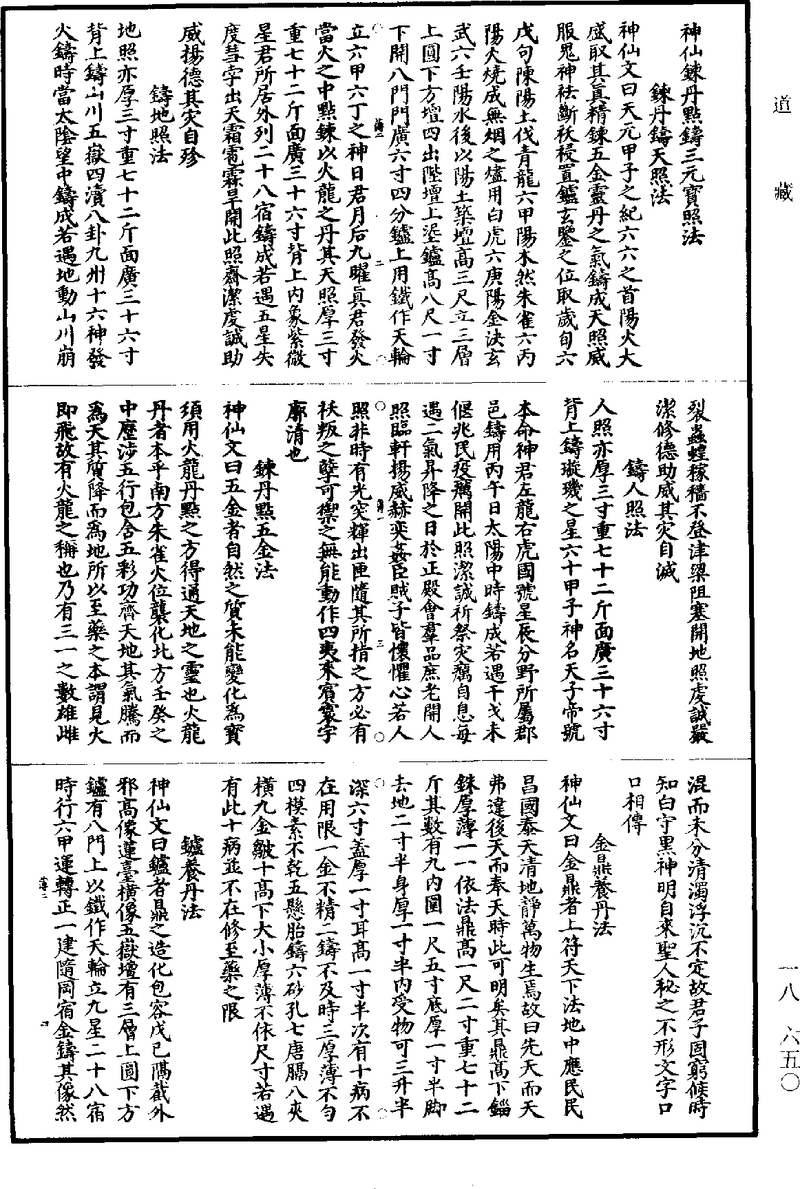 道藏
神仙鍊丹點鑄三元寶照法
鍊丹鑄天照法
神仙文曰天元甲子之紀六六之首陽火大
盛取其真精鍊五金靈丹之氣鑄成天照威
服鬼神祛斷祅祲置鑪玄鑒之位取歲旬六
戊句陳陽土伐青龍六甲陽木然朱雀六丙
陽火燒成無烟之燼用白虎六庚陽金決玄
武六壬陽水後以陽土築壇高三尺立三層
上圓下方壇四出陛壇上埿鑪高八尺一寸
下開八門門廣六寸四分鑪上用鐵作天輪
立六甲六丁之神日君月后九曜真君發火
當火之中點鍊以火龍之丹其天照厚三寸
重七十二斤面廣三十六寸背上內象紫微
星君所居外列二十八宿鑄成若遇五星失
度彗孛出天霜雹霖旱開此照齋潔虔誠助
威揚德其灾自殄
鑄地照法
地照亦厚三寸重七十二斤面廣三十六寸
背上鑄山川五嶽四瀆八卦九州十六神發
火鑄時當太陰望中鑄成若遇地動山川崩
裂蟲蝗稼穡不登津梁阻塞開地照虔誠嚴
潔修德助威其灾自滅
鑄人照法
人照亦厚三寸重七十二斤面廣三十六寸
背上鑄璇璣之星六十甲子神名天子帝號
本命神君左龍右虎國號星辰分野所屬郡
邑鑄用丙午日太陽中時鑄成若遇干戈未
偃兆民疫癘開此照潔誠祈祭灾癘自息每
遇二氣昇降之日於正殿會羣品庶老開人
照臨軒揚威赫奕姦臣賊子皆懷懼心若人
照非時有光突輝出匣隨其所指之方必有
祅叛之孽可禦之無能動作四夷來賓寰宇
廓清也
鍊丹點五金法
神仙文曰五金者自然之質未能變化為寶
須用火龍丹點之方得通天地之靈也火龍
丹者本乎南方朱雀火位襲化北方壬癸之
中歷涉五行包含五彩功齊天地其氣騰而
為天其質降而為地所以至藥之本謂見火
即飛故有火龍之稱也乃有三一之數雄雌
混而未分清濁浮沉不定故君子固窮候時
知白守黑神明自來聖人秘之不形文字口
口相傳
金鼎養丹法
神仙文曰金鼎者上符天下法地中應民民
昌國泰天清地靜萬物生焉故曰先天而天
弗違後天而奉天時此可明矣其鼎高下錙
銖厚薄一一依法鼎高一尺二寸重七十二
斤其數有九內圓一尺五寸底厚一寸半脚
去地二寸半身厚一寸半內受物可三升半
深六寸蓋厚一寸耳高一寸半次有十病不
在用限一金不精二鑄不及時三厚薄不勻
四模素不乾五懸胎鑄六砂孔七唐膈八夾
橫九金皺十高下大小厚薄不依尺寸若遇
有此十病並不在修至藥之限
鑪養丹法
神仙文曰鑪者鼎之造化包容戊已隔截外
邪高像蓮臺橫像五嶽壇有三層上圓下方
鑪有八門上以鐵作天輪立九星二十八宿
時行六甲運轉正一建隨罡宿金鑄其像然
一八 六五〇